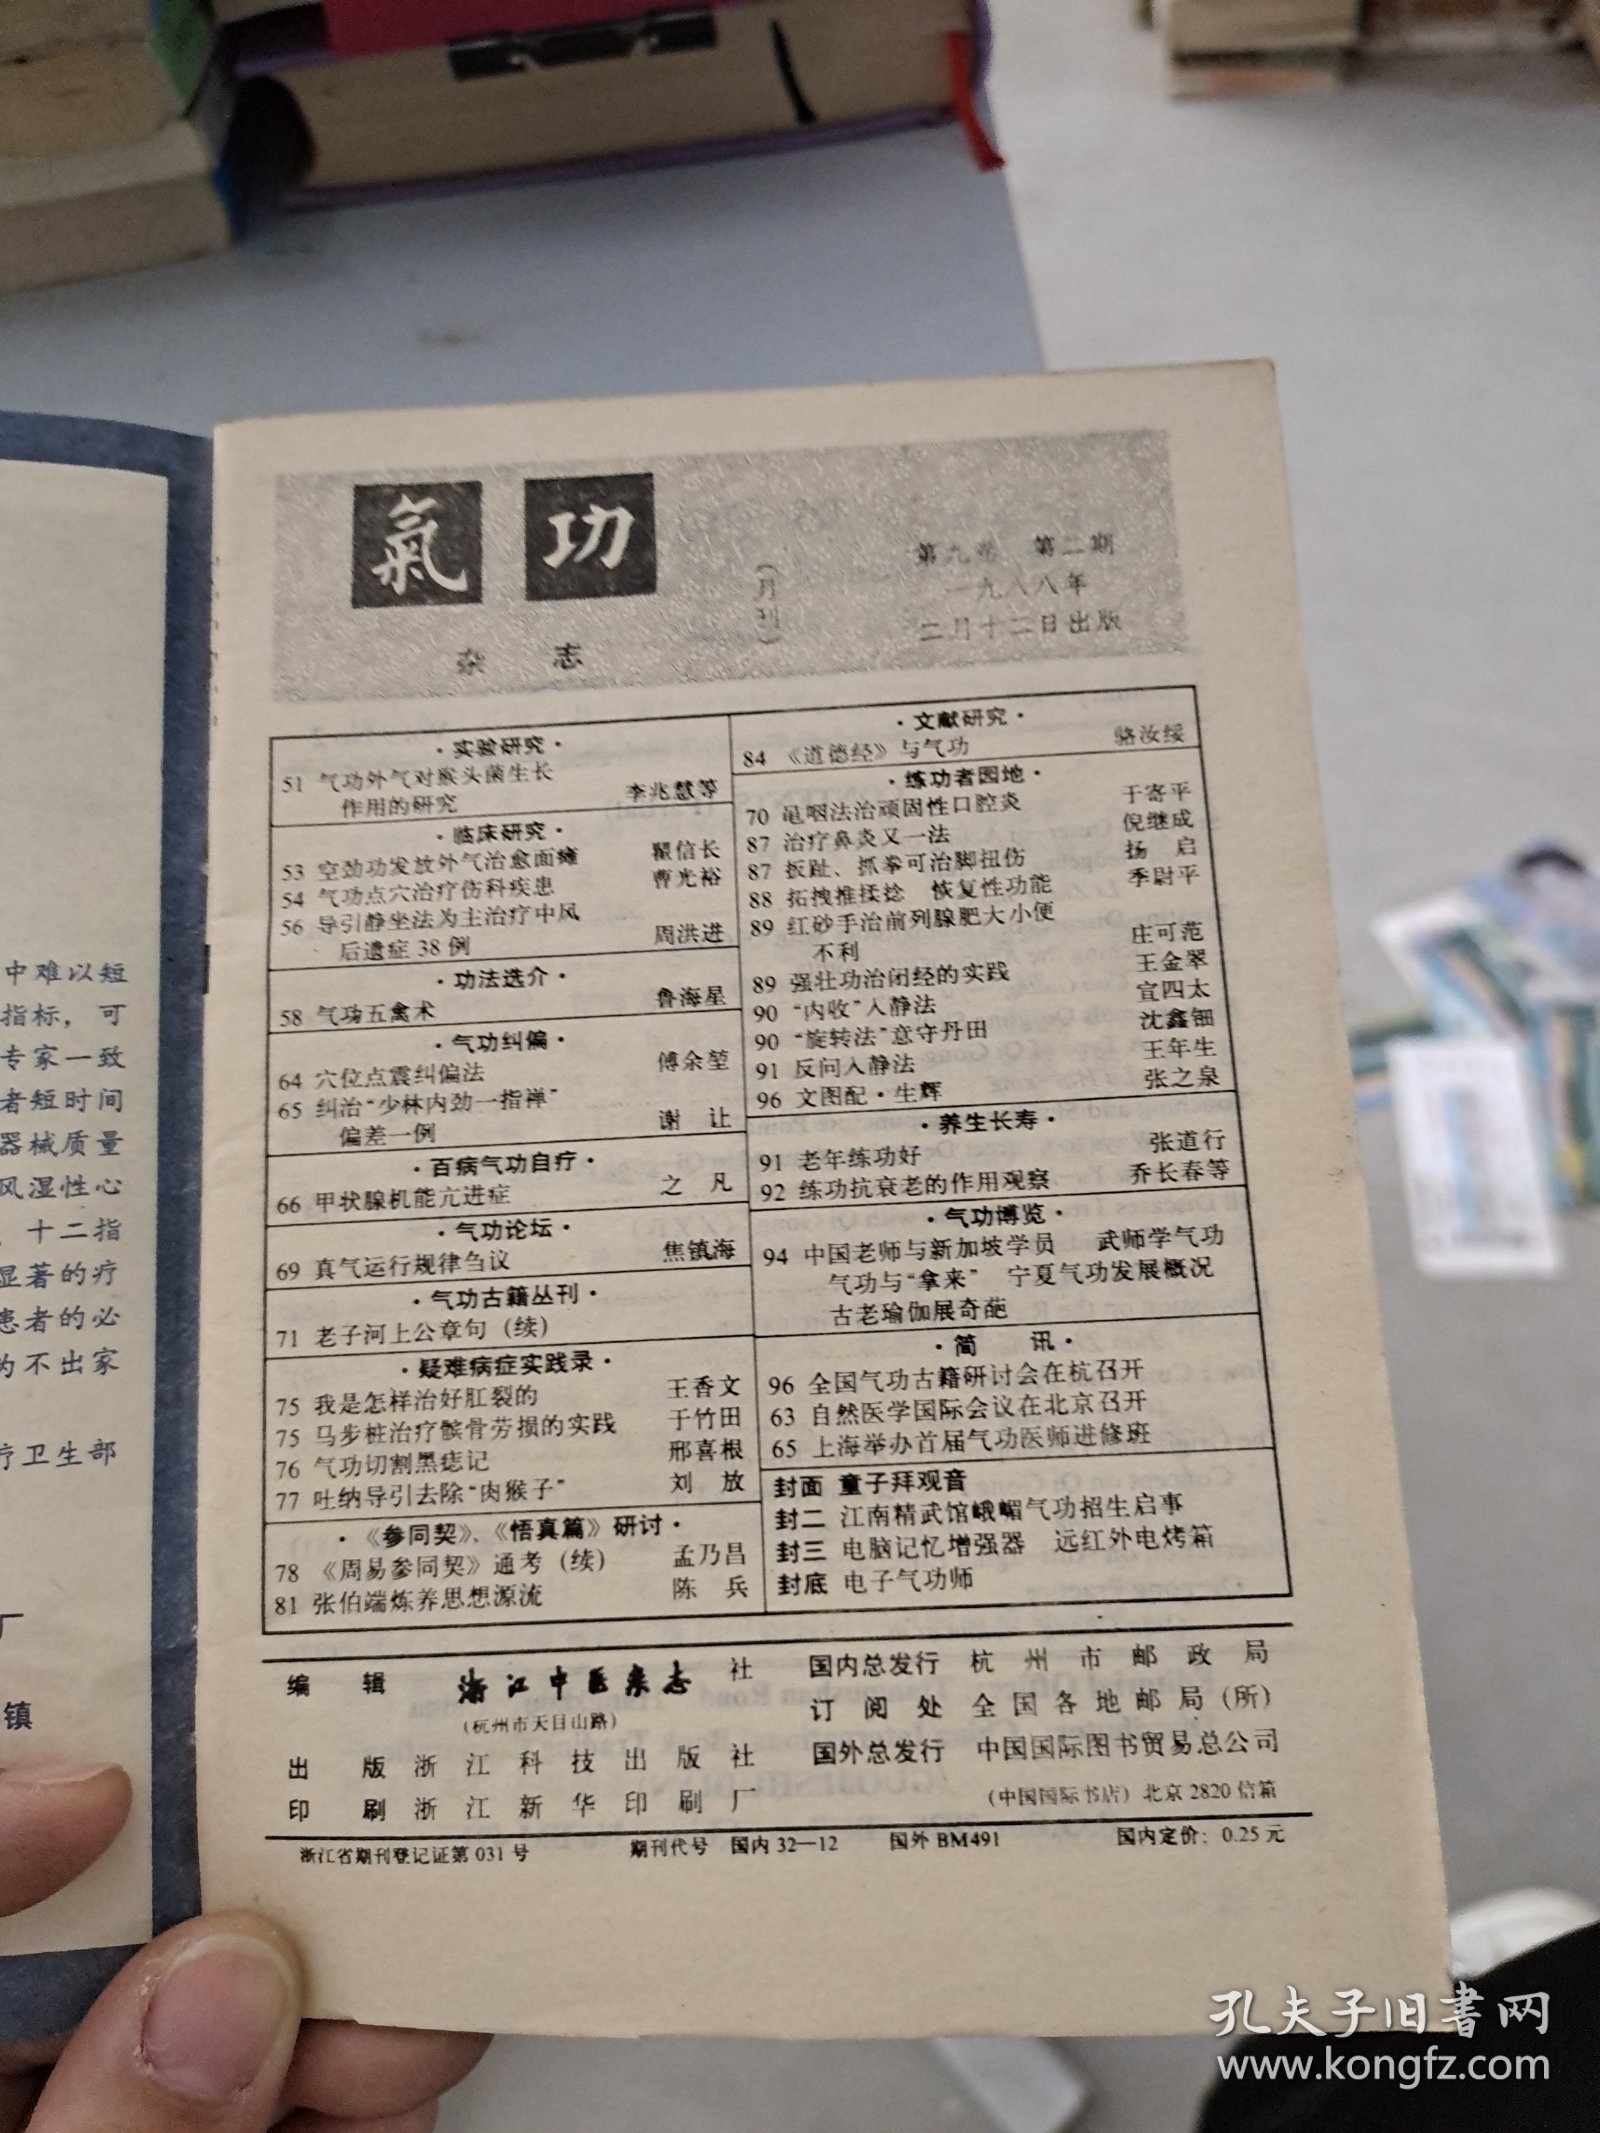 氣 功
杂 志
（月刊）
第九卷 第二期
一九八八年
二月十二日出版
·实验研究·
51 气功外气对猴头菌生长
作用的研究 李兆慧等
·临床研究·
53 空劲功发放外气治愈面瘫 瞿信长
54 气功点穴治疗伤科疾患 曹光裕
56 导引静坐法为主治疗中风
后遗症38例 周洪进
·功法选介·
58 气功五禽术 鲁海星
·气功纠偏·
64 穴位点震纠偏法 傅余堃
65 纠治“少林内劲一指禅”
偏差一例 谢 让
·百病气功自疗·
66 甲状腺机能亢进症 之 凡
·气功论坛·
69 真气运行规律刍议 焦镇海
·气功古籍丛刊·
71 老子河上公章句（续）
·疑难病症实践录·
75 我是怎样治好肛裂的 王香文
75 马步桩治疗髌骨劳损的实践 于竹田
76 气功切割黑痣记 邢喜根
77 吐纳导引去除“肉猴子” 刘 放
·《参同契》、《悟真篇》研讨·
78 《周易参同契》通考（续） 孟乃昌
81 张伯端炼养思想源流 陈 兵
·文献研究·
84 《道德经》与气功 骆汝绥
·练功者园地·
70 黾咽法治顽固性口腔炎 于寄平
87 治疗鼻炎又一法 倪继成
87 扳趾、抓拳可治脚扭伤 扬 启
88 拓拽推揉捻 恢复性功能 季尉平
89 红砂手治前列腺肥大小便
不利 庄可范
89 强壮功治闭经的实践 王金翠
90 “内收”入静法 宣四太
90 “旋转法”意守丹田 沈鑫钿
91 反问入静法 王年生
96 文图配·生辉 张之泉
·养生长寿·
91 老年练功好 张道行
92 练功抗衰老的作用观察 乔长春等
·气功博览·
94 中国老师与新加坡学员 武师学气功
气功与“拿来” 宁夏气功发展概况
古老瑜伽展奇葩
·简 讯·
96 全国气功古籍研讨会在杭召开
63 自然医学国际会议在北京召开
65 上海举办首届气功医师进修班
封面 童子拜观音
封二 江南精武馆峨嵋气功招生启事
封三 电脑记忆增强器 远红外电烤箱
封底 电子气功师
编 辑 浙江中医杂志 社
（杭州市天目山路）
出 版 浙江科技出版社
印 刷 浙江新华印刷厂
国内总发行 杭州市邮政局
订 阅 处 全国各地邮局（所）
国外总发行 中国国际图书贸易总公司
（中国国际书店）北京2820信箱
浙江省期刊登记证第031号 期刊代号 国内32—12 国外BM491 国内定价：0.25元
中难以短
指标，可
专家一致
者短时间
器械质量
风湿性心
、十二指
显著的疗
患者的必
为不出家
疗卫生部
厂
镇
孔夫子旧书网
www.kongfz.com